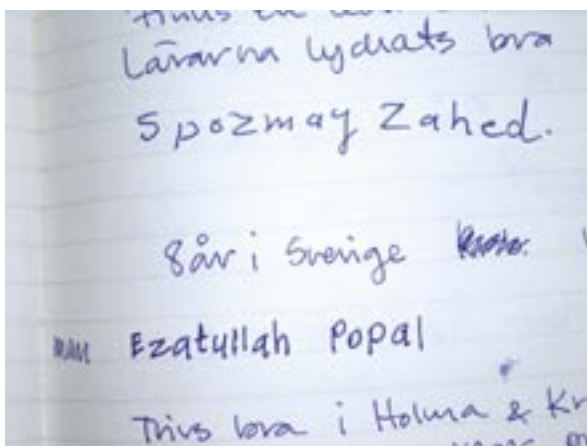 Lärarna lyckats bra
Spozmay Zahed.
8 år i Sverige
MAN Ezatullah Popal
Trivs bra i Holma & Kr